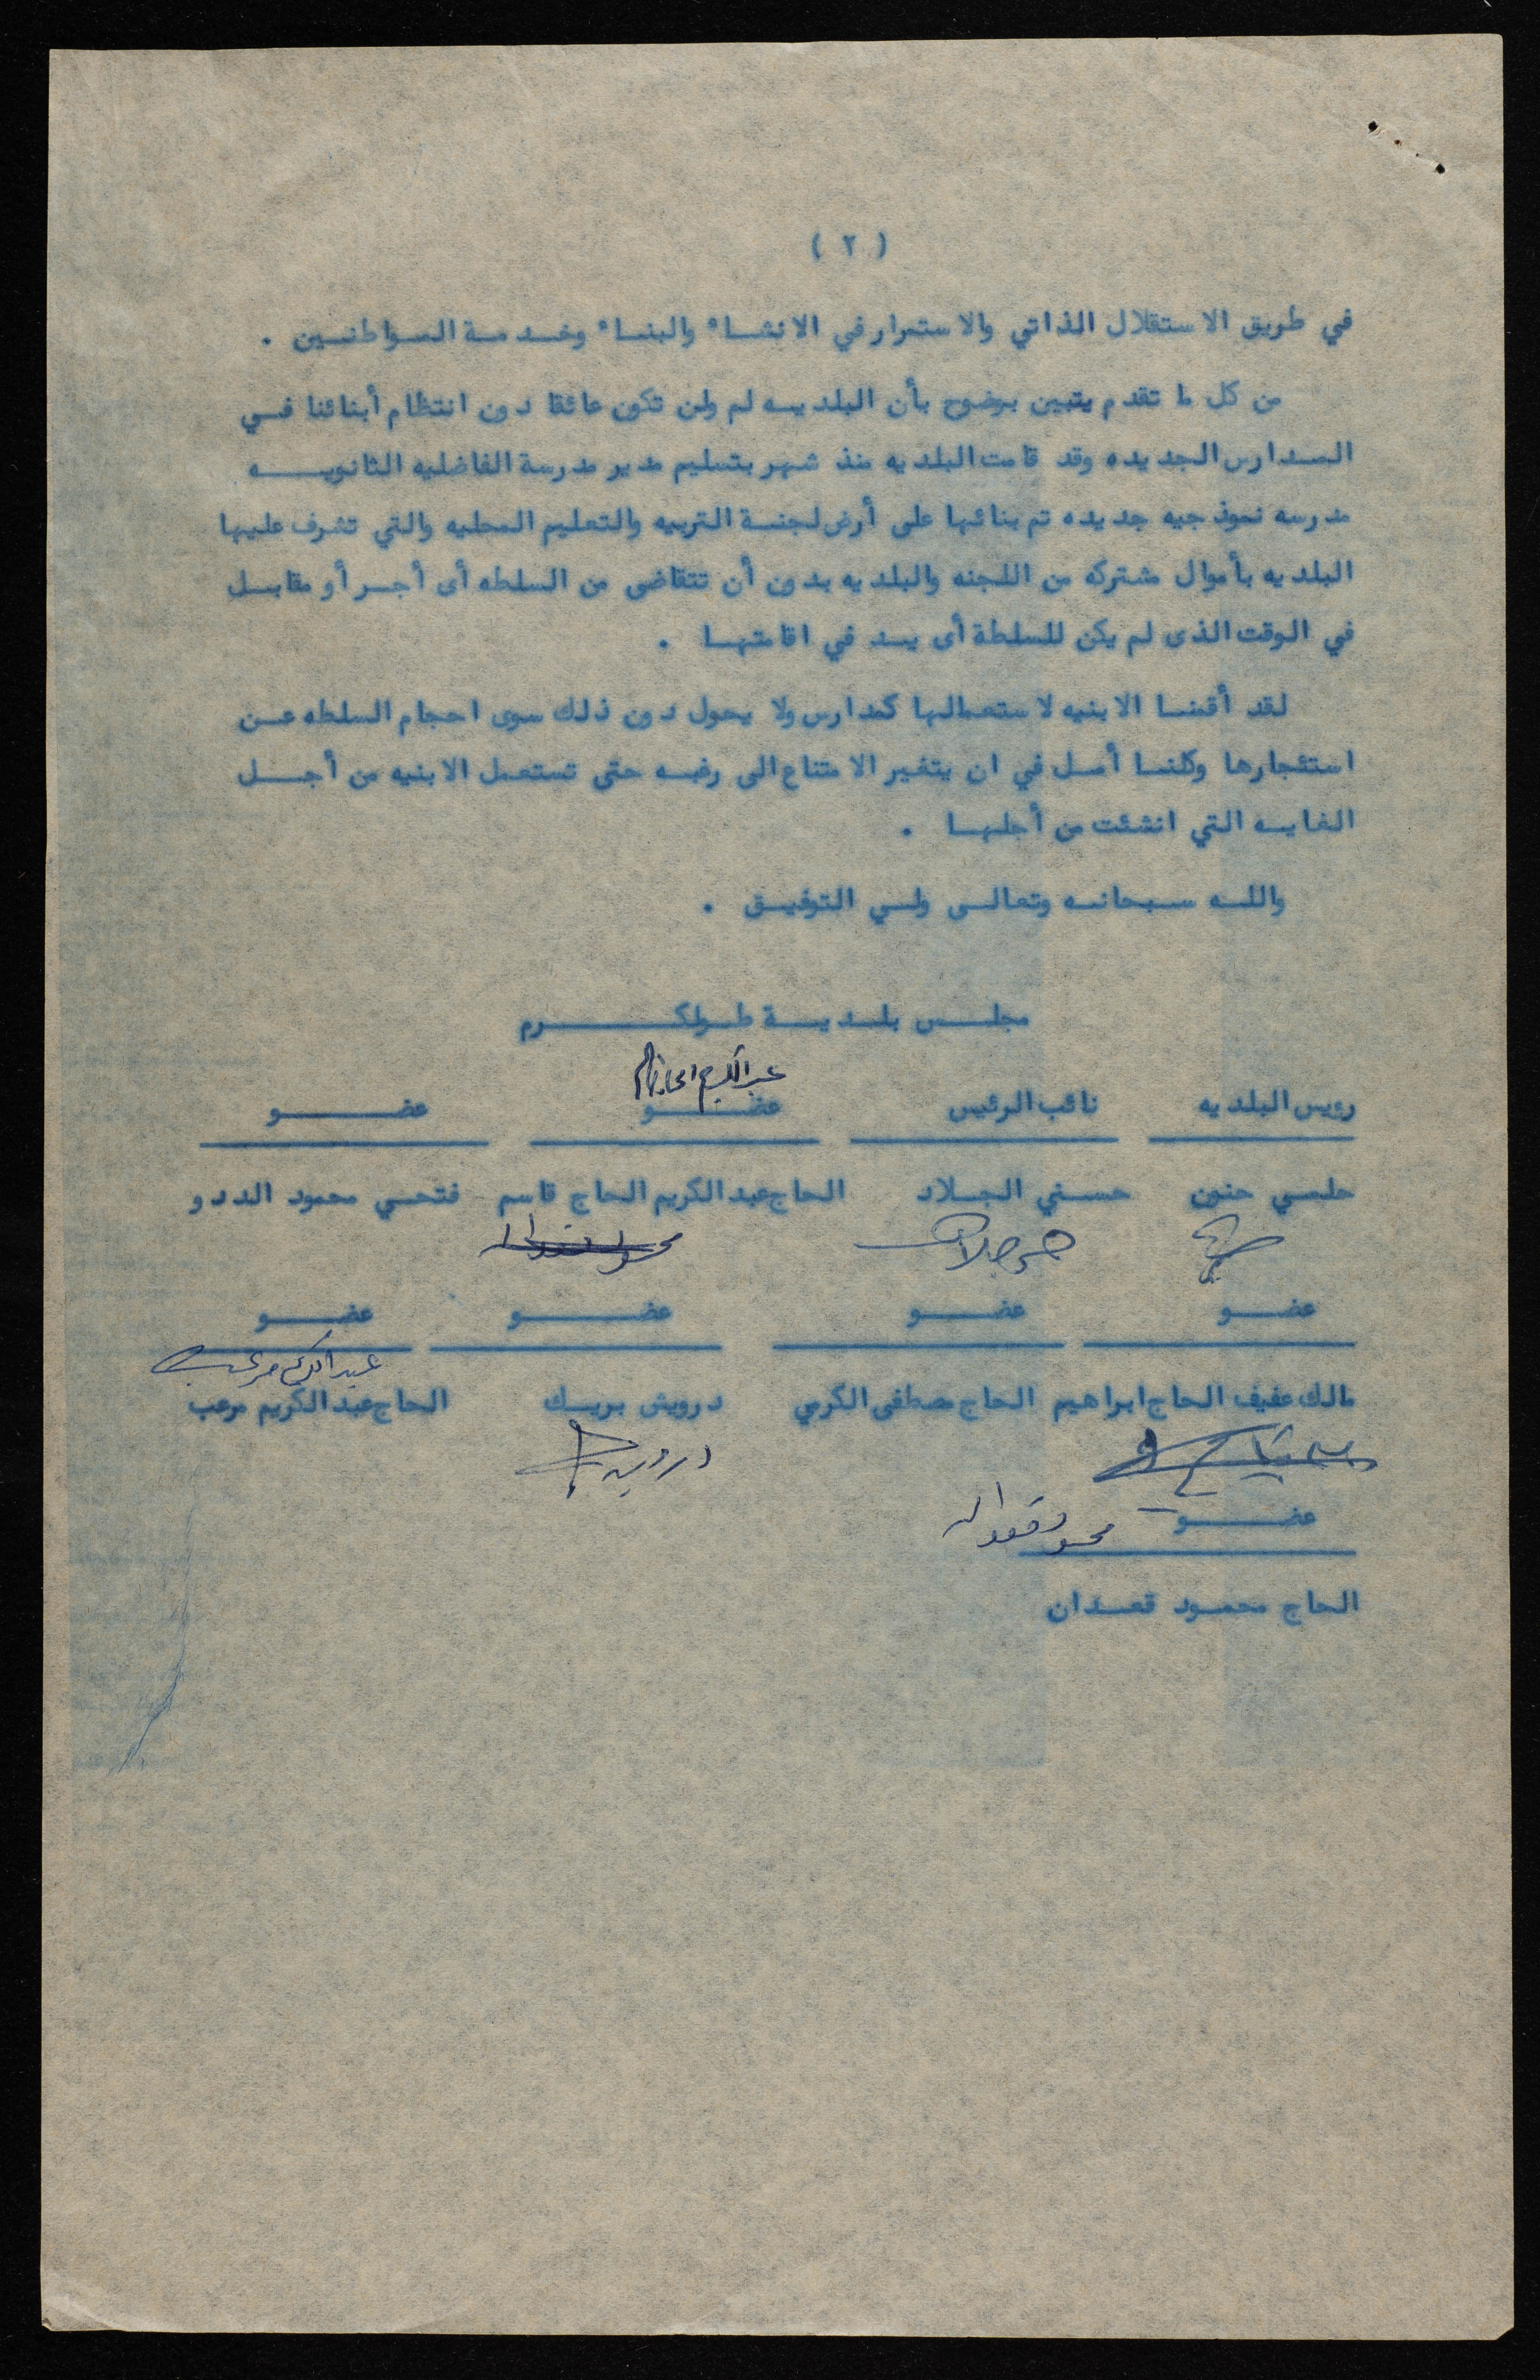 ( ٢ )
في طريق الاستقلال الذاتي والاستمرار في الانشاء والبناء وخدمة المواطنين .
من كل ما تقدم يتبين بوضوح بأن البلديه لم ولن تكون عائقا دون انتظام أبنائنا في
المدارس الجديده وقد قامت البلديه منذ شهر بتسليم مدير مدرسة الفاضليه الثانويه
مدرسه نموذجيه جديده تم بنائها على أرض لجنة التربيه والتعليم المحليه والتي تشرف عليها
البلديه بأموال مشتركه من اللجنه والبلديه بدون أن تتقاضى من السلطه أى أجر أو مقابل
في الوقت الذى لم يكن للسلطة أى يد في اقامتها .
لقد أقمنا الابنيه لاستعمالها كمدارس ولا يحول دون ذلك سوى احجام السلطه عن
استئجارها وكلنا أمل في ان يتغير الامتناع الى رغبه حتى تستعمل الابنيه من أجل
الغايه التي انشئت من أجلها .
والله سبحانه وتعالى ولي التوفيق .
مجلس بلدية طولكرم
عبد الكريم الحاج قاسم
رئيس البلديه نائب الرئيس عضو عضو
حلمي حنون حسني الجلاد الحاج عبد الكريم الحاج قاسم فتحي محمود الددو
محمود قعدان
عضو عضو عضو عضو
عبد الكريم مرعب
مالك عفيف الحاج ابراهيم الحاج مصطفى الكرمي درويش بريك الحاج عبد الكريم مرعب
درويش
عضو محمود قعدان
الحاج محمود قعدان